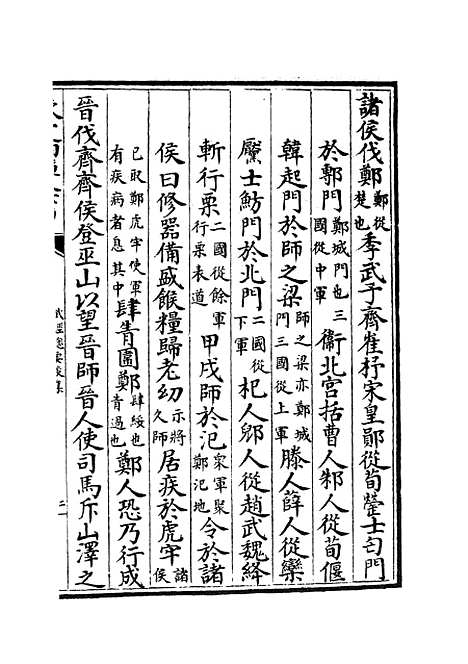 諸侯伐鄭鄭從楚也季武子齊崔杼宋皇鄖從荀罃士匄門
於鄟門鄭城門也三國從中軍衞北宮括曹人邾人從荀偃
韓起門於師之梁師之梁亦鄭城門三國從上軍滕人薛人從欒
黶士魴門於北門二國從下軍杞人郳人從趙武魏絳
斬行栗二國從餘軍行栗表道甲戌師於氾衆軍聚鄭氾地令於諸
侯曰修器備盛餱糧歸老幼示將久師居疾於虎牢諸侯
已取鄭虎牢使軍有疾病者息其中肆青圍鄭肆緩也青過也鄭人恐乃行成
晉伐齊齊侯登巫山以望晉師晉人使司馬斥山澤之